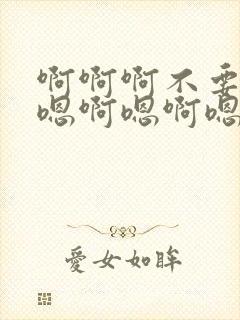 啊啊啊不要
嗯啊嗯啊嗯
愛女如眸